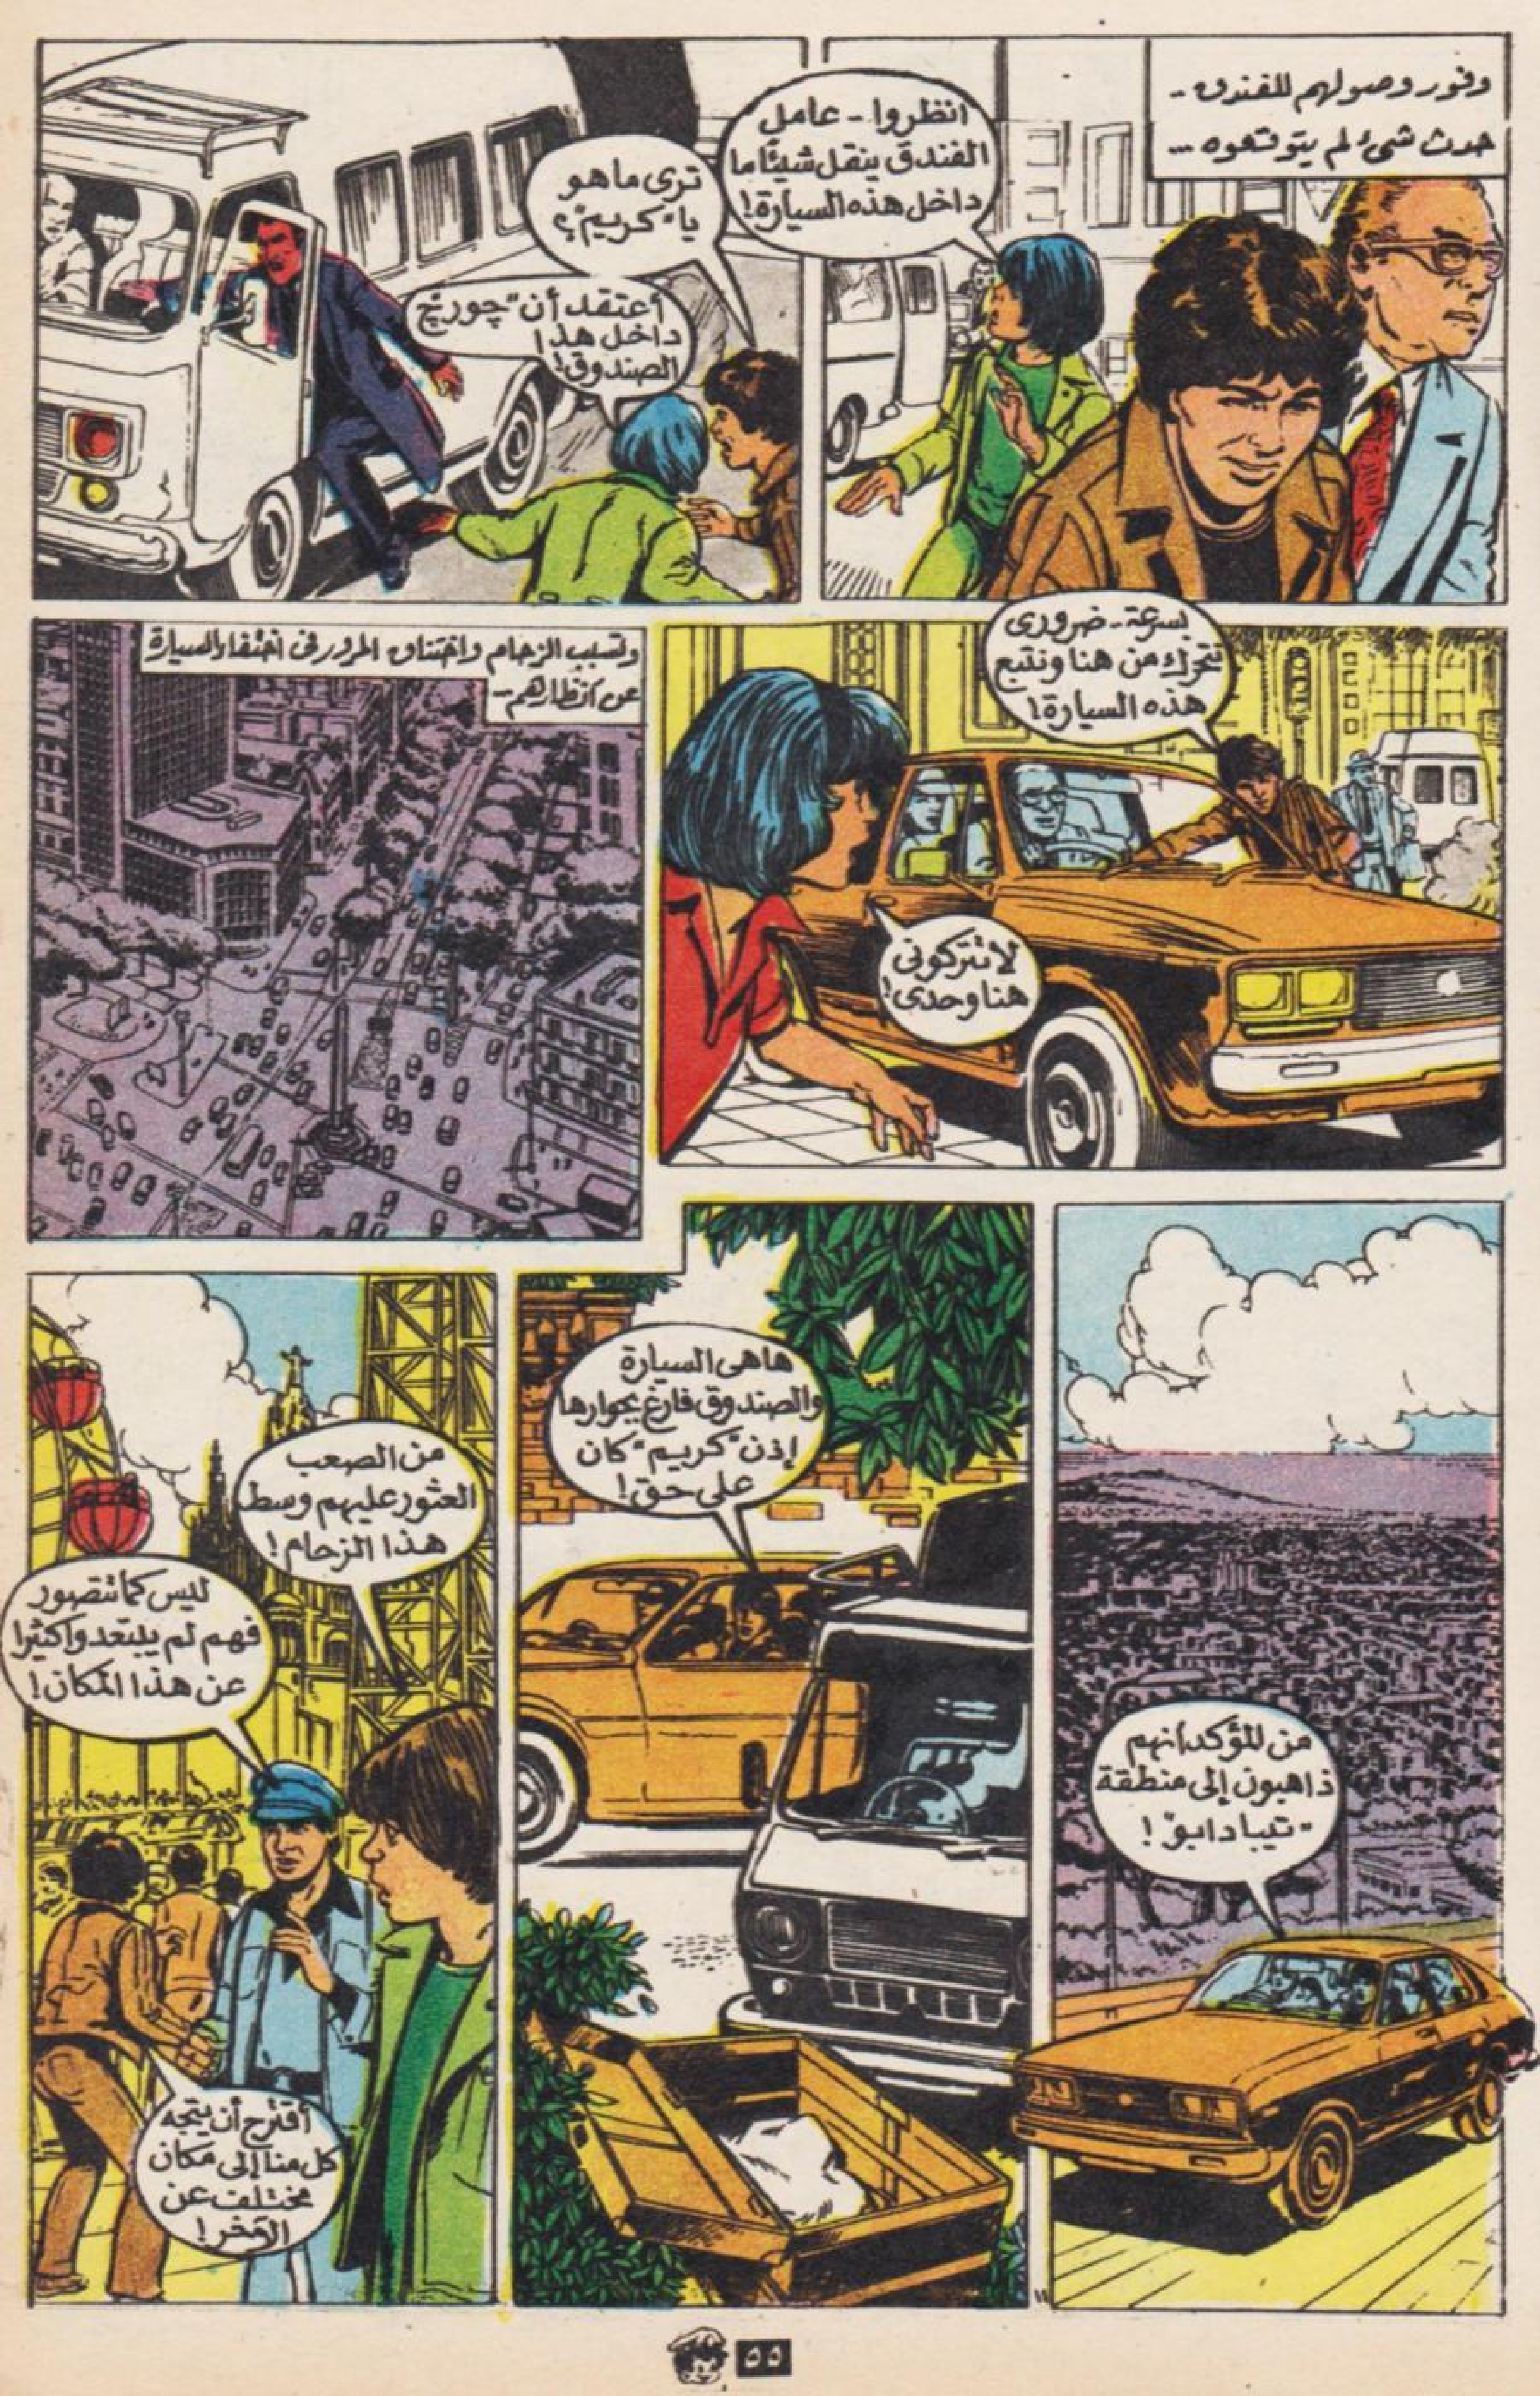 وفور وصولهم للفندق -
حدث شئ لم يتوقعوه --
انظروا - عامل
الفندق ينقل شيئًا ما
داخل هذه السيارة!
ترى ماهو
يا "كريم"؟
أعتقد أن "چورچ"
داخل هذا
الصندوق!
بسرعة - ضرورى
نتحرك من هنا ونتبع
هذه السيارة!
لا تتركونى
هنا وحدى!
وتسبب الزحام واختناق المرور فى اختفاء السيارة
عن أنظارهم -
من المؤكد أنهم
ذاهبون إلى منطقة
"تيبا دابو" !
هاهى السيارة
والصندوق فارغ بجوارها
إذن "كريم" كان
على حق!
من الصعب
العثور عليهم وسط
هذا الزحام!
ليس كما تتصور
فهم لم يبتعدوا كثيرا
عن هذا المكان!
أقترح أن يتجه
كل منا إلى مكان
مختلف عن
الآخر!
٥٥